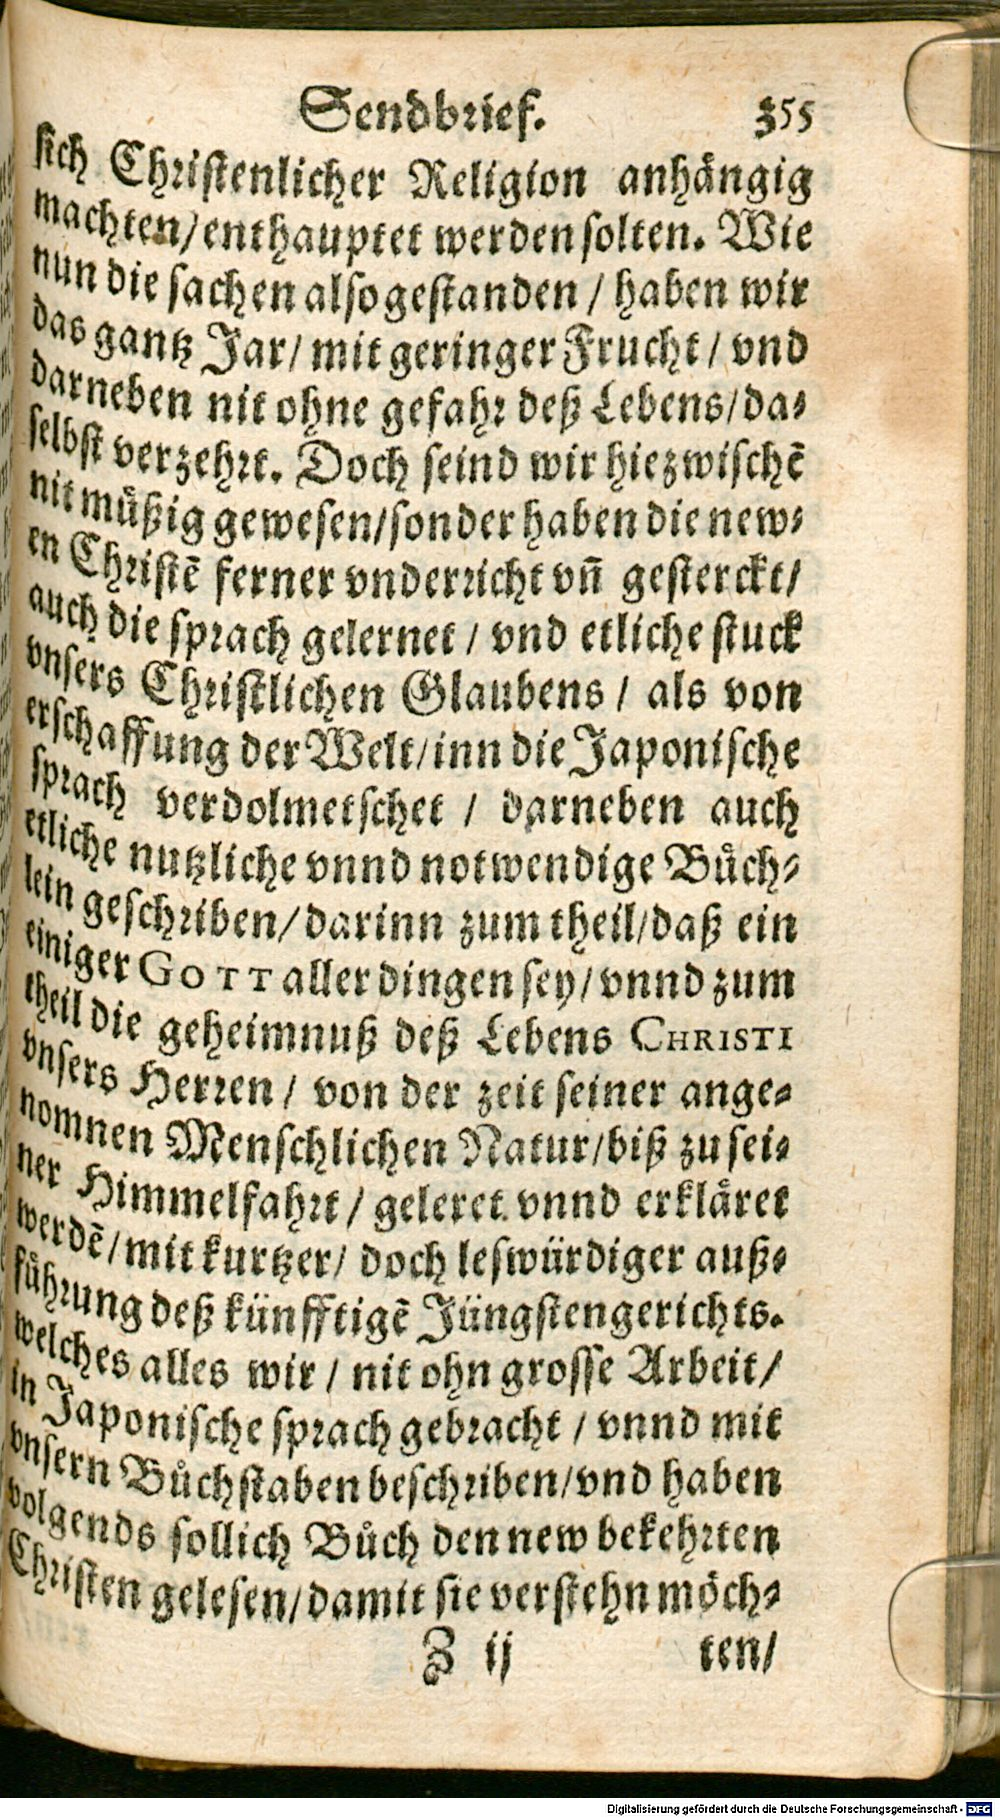 Sendbrief. 355
sich Christenlicher Religion anhängig
machten/enthauptet werden solten. Wie
nun die sachen also gestanden / haben wir
das gantz Jar/ mit geringer Frucht / vnd
darneben nit ohne gefahr deß Lebens/da-
selbst verzehrt. Doch seind wir hiezwischē
nit müßig gewesen/sonder haben die new-
en Christē ferner vnderricht vn̄ gesterckt/
auch die sprach gelernet / vnd etliche stuck
vnsers Christlichen Glaubens / als von
erschaffung der Welt/inn die Japonische
sprach verdolmetschet / darneben auch
etliche nutzliche vnnd notwendige Bůch-
lein geschriben/darinn zum theil/daß ein
einiger GOTT aller dingen sey/vnnd zum
theil die geheimnuß deß Lebens CHRISTI
vnsers Herren / von der zeit seiner ange-
nomnen Menschlichen Natur/biß zu sei-
ner Himmelfahrt / geleret vnnd erkläret
werdē/mit kurtzer/ doch leswürdiger auß-
fůhrung deß künfftigē Jüngstengerichts.
welches alles wir / nit ohn grosse Arbeit/
in Japonische sprach gebracht / vnnd mit
vnsern Bůchstaben beschriben/vnd haben
volgends sollich Bůch den new bekehrten
Christen gelesen/damit sie verstehn möch-
Z ij ten/
Digitalisierung gefördert durch die Deutsche Forschungsgemeinschaft - DFG